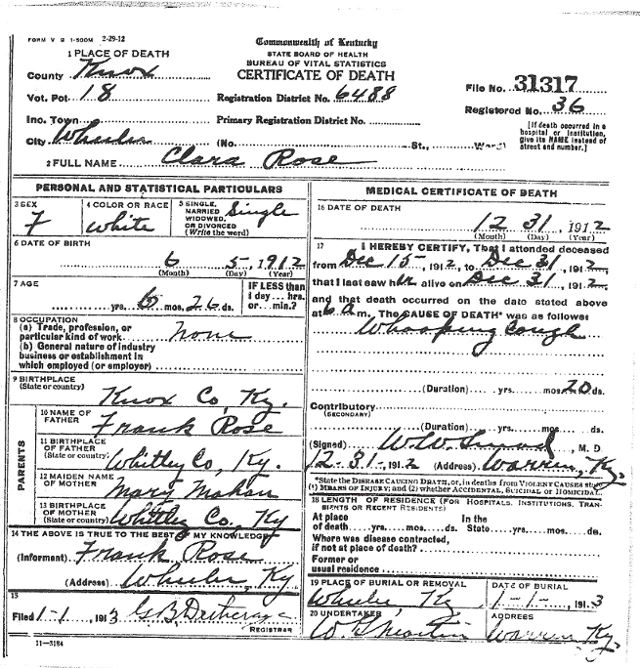 FORM V S 1-500M 2-29-12
Commonwealth of Kentucky
STATE BOARD OF HEALTH
BUREAU OF VITAL STATISTICS
CERTIFICATE OF DEATH
1 PLACE OF DEATH
County Knox
Vot. Pct. 18
Registration District No. 6488
File No. 31317
Registered No. 36
Inc. Town
Primary Registration District No.
City Wheeler (No. St., Ward)
[If death occurred in a hospital or institution, give its NAME instead of street and number.]
2 FULL NAME Clara Rose
PERSONAL AND STATISTICAL PARTICULARS
3 SEX F
4 COLOR OR RACE White
5 SINGLE, MARRIED WIDOWED, OR DIVORCED (Write the word) Single
6 DATE OF BIRTH
6 5, 1912
(Month) (Day) (Year)
7 AGE
yrs. 6 mos. 26 ds.
IF LESS than 1 day... hrs. or... min.?
8 OCCUPATION
(a) Trade, profession, or particular kind of work none
(b) General nature of industry business or establishment in which employed (or employer)
9 BIRTHPLACE (State or country) Knox Co, Ky.
PARENTS
10 NAME OF FATHER Frank Rose
11 BIRTHPLACE OF FATHER (State or country) Whitley Co, Ky.
12 MAIDEN NAME OF MOTHER Mary Mahan
13 BIRTHPLACE OF MOTHER (State or country) Whitley Co, Ky
14 THE ABOVE IS TRUE TO THE BEST OF MY KNOWLEDGE
(Informant) Frank Rose
(Address) Wheeler, Ky
15
Filed 1-1, 1913 G B
REGISTRAR
11-3184
MEDICAL CERTIFICATE OF DEATH
16 DATE OF DEATH
12 31, 1912
(Month) (Day) (Year)
17 I HEREBY CERTIFY, That I attended deceased
from Dec 15, 1912, to Dec 31, 1912,
that I last saw her alive on Dec 31, 1912,
and that death occurred on the date stated above
at 6 a m. The CAUSE OF DEATH* was as follows:
Whooping Cough
(Duration) yrs. mos. 20 ds.
Contributory (SECONDARY)
(Duration) yrs. mos. ds.
(Signed) W. W. , M. D
12-31-1912 (Address) Warren, Ky.
*State the DISEASE CAUSING DEATH, or, in deaths from VIOLENT CAUSES state
(1) MEANS OF INJURY; and (2) whether ACCIDENTAL, SUICIDAL or HOMICIDAL.
18 LENGTH OF RESIDENCE (FOR HOSPITALS, INSTITUTIONS, TRANSIENTS OR RECENT RESIDENTS)
At place of death yrs. mos. ds. In the State yrs. mos. ds.
Where was disease contracted, if not at place of death?
Former or usual residence
19 PLACE OF BURIAL OR REMOVAL Wheeler, Ky
DATE OF BURIAL 1-1-, 1913
20 UNDERTAKER W G Martin
ADDRESS Warren Ky.